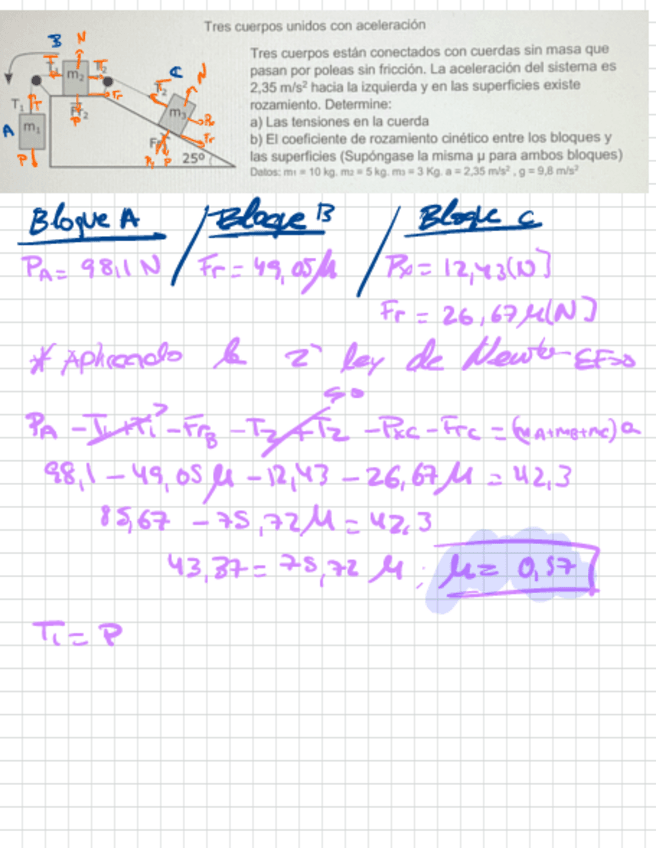 Tres cuerpos unidos con aceleración
Tres cuerpos están conectados con cuerdas sin masa que
pasan por poleas sin fricción. La aceleración del sistema es
2,35 m/s² hacia la izquierda y en las superficies existe
rozamiento. Determine:
a) Las tensiones en la cuerda
b) El coeficiente de rozamiento cinético entre los bloques y
las superficies (Supóngase la misma μ para ambos bloques)
Datos: m₁ = 10 kg. m₂ = 5 kg. m₃ = 3 Kg. a = 2,35 m/s² , g = 9,8 m/s²
B N
T₂
m₂
Fr
C N
T₂
m₃
Fr
T₁
A m₁
P
25º
Bloque A / Bloque B / Bloque C
PA = 98,1 N / Fr = 49,05μ / Px = 12,43(N)
Fr = 26,67μ(N)
* Aplicando la 2ª ley de Newton ΣF=0
PA - T₁ + T₁ - FrB - T₂ + T₂ - PxC - FrC = (mA+mB+mC)a
98,1 - 49,05μ - 12,43 - 26,67μ = 42,3
85,67 - 75,72μ = 42,3
43,37 = 75,72 μ ; μ = 0,57
T₁ = P